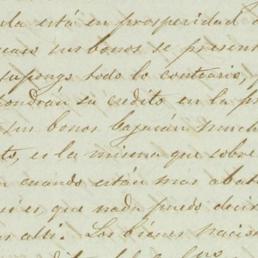 ula está en prosperidad
sus bonos se present
suponga todo lo contrario,
pondrán su crédito en la p
sus bonos bajarán much
es la misma que sobre
cuando están mas abat
es que nada puedo decir
alli. Los bienes nacion